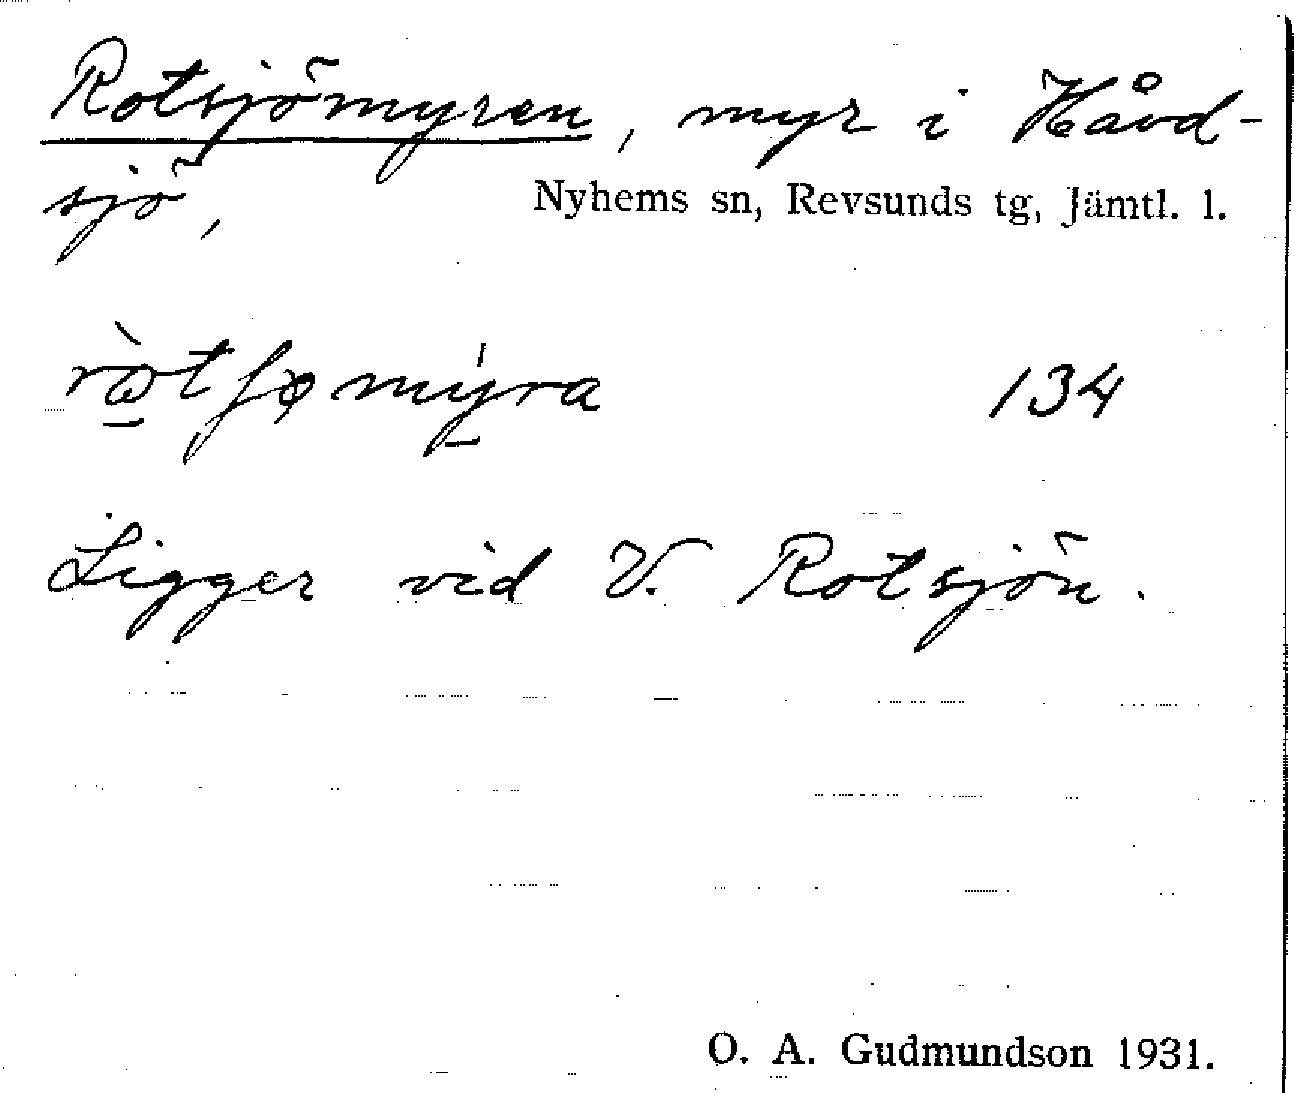 Rotsjömyren, myr i Håvd-
sjö,
Nyhems sn, Revsunds tg, Jämtl. l.
134
Ligger vid V. Rotsjön.
O. A. Gudmundson 1931.